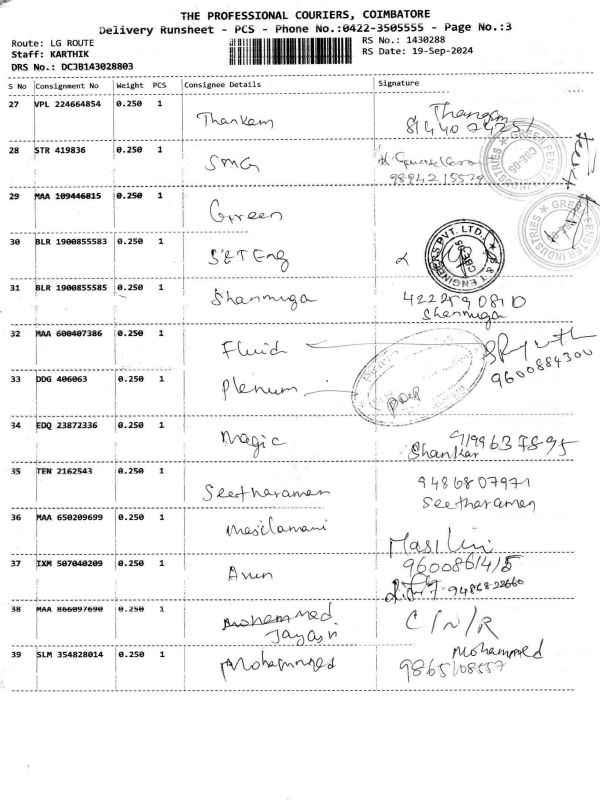 THE PROFESSIONAL COURIERS, COIMBATORE
Delivery Runsheet - PCS - Phone No.:0422-3505555 - Page No.:3
Route: LG ROUTE
Staff: KARTHIK
DRS No.: DCJB143028803
RS No.: 1430288
RS Date: 19-Sep-2024
S No Consignment No Weight PCS Consignee Details Signature
27 VPL 224664854 0.250 1 Thankam Thangam
28 STR 419836 0.250 1 SMG
9894215529
GREEN FENSTER INDUSTRIES
CBE-05
29 MAA 109446815 0.250 1 Green
GREEN FENSTER INDUSTRIES
30 BLR 1900855583 0.250 1 S&T Eng
S & T ENGINEERS PVT. LTD.
31 BLR 1900855585 0.250 1 Shanmuga
Shanmuga
32 MAA 600407386 0.250 1 Fluid
33 DDG 406063 0.250 1 Plenum 9600884300
34 EDQ 23872336 0.250 1 Magic Shankar
35 TEN 2162543 0.250 1 Seetharaman 9486807971
Seetharaman
36 MAA 650209699 0.250 1 Masilamani
37 IXM 507040209 0.250 1 Arun
38 MAA 866097690 0.250 1 Mohammed C/N/R
39 SLM 354828014 0.250 1 Mohammed Mohammed
9865108557